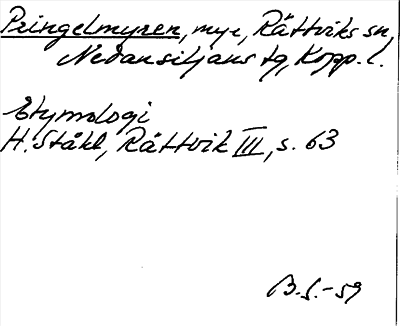 Pringelmyren, myr, Rättviks sn,
Nedansiljans tg, Kopp. l.
Etymologi
H. Ståhl, Rättvik III, s. 63
B.S.-59